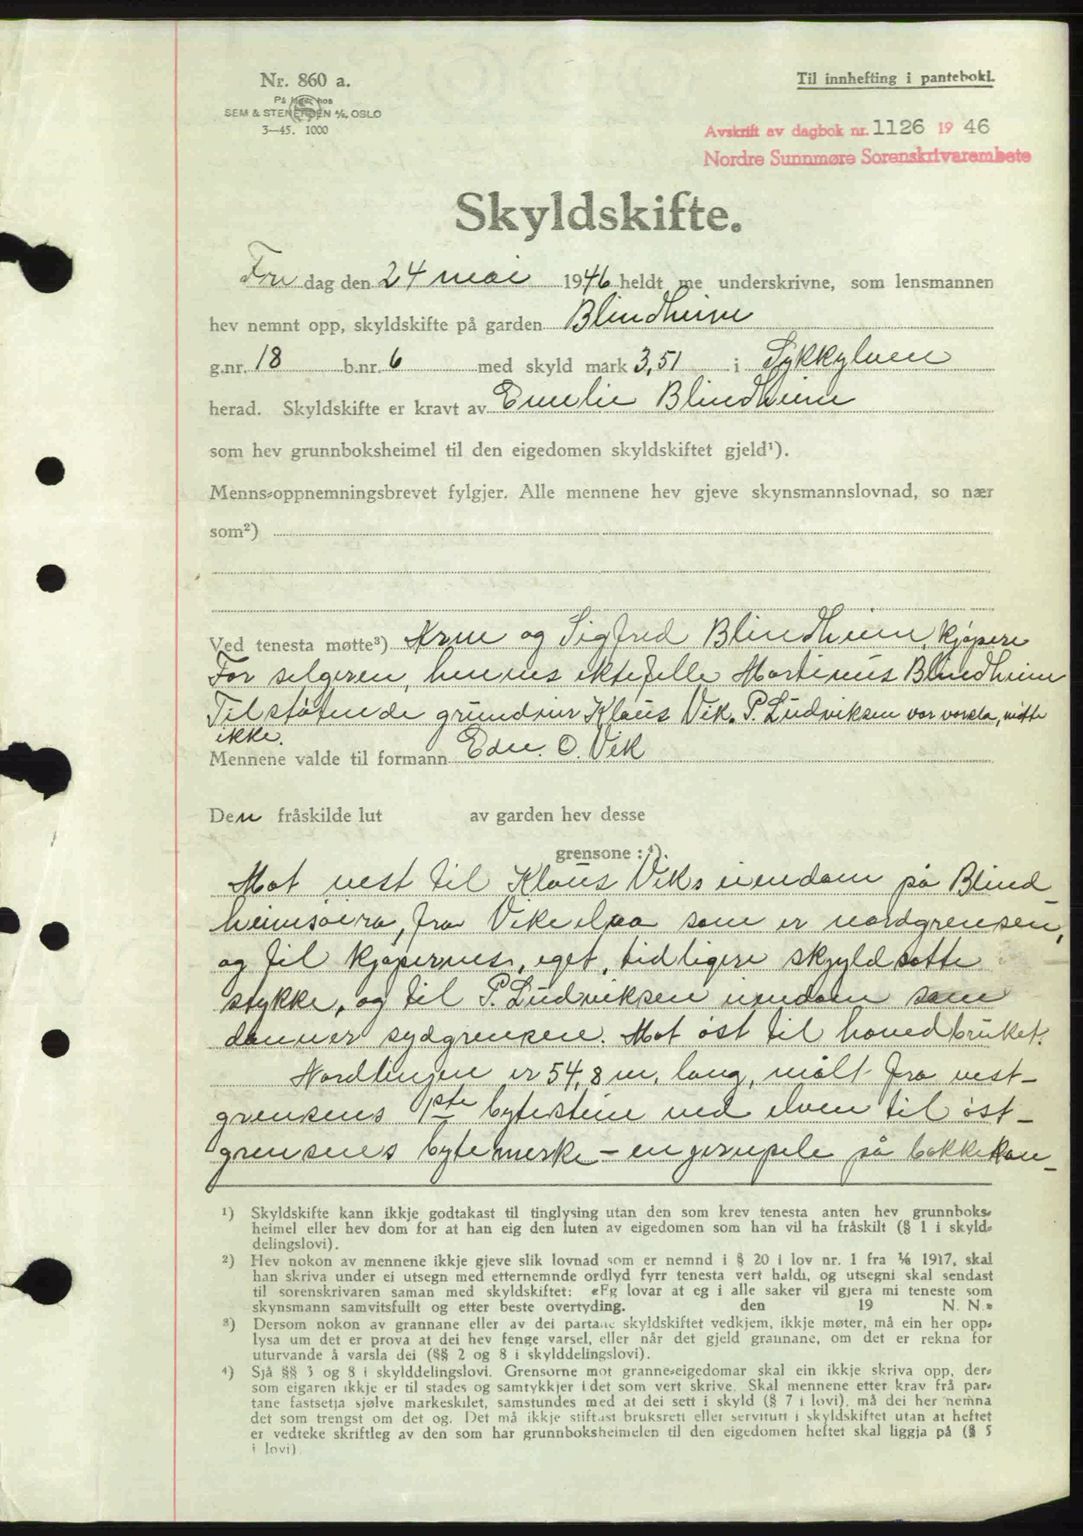 Nr. 860 a.
På lager hos
SEM & STENERSEN A/S, OSLO
3—45. 1000
Til innhefting i pantebokl.
Avskrift av dagbok nr. 1126 1946
Nordre Sunnmøre Sorenskrivarembete
Skyldskifte.
Fre dag den 24 mai 1946 heldt me underskrivne, som lensmannen
hev nemnt opp, skyldskifte på garden Blindheim
g.nr. 18 b.nr. 6 med skyld mark 3,51 i Sykkylven
herad. Skyldskifte er kravt av Emelie Blindheim
som hev grunnboksheimel til den eigedomen skyldskiftet gjeld¹).
Menns-oppnemningsbrevet fylgjer. Alle mennene hev gjeve skynsmannslovnad, so nær
som²)
Ved tenesta møtte³) og Sigfred Blindheim, kjøpere
For selgeren, hennes ektefelle Martinus Blindheim
Tilstøtende Klaus Vik. P. Ludviksen var varsla, møtte
ikke.
Mennene valde til formann Edv. O. Vik
Den fråskilde lut av garden hev desse
grensone :⁴)
Mot vest til Klaus Viks eiendom på Blind
heimsøira, fra Vikeelva som er nordgrensen,
og til kjøpernes, eget, tidligere skyldsatte
stykke, og til P. Ludviksen eiendom som
danner sydgrensen. Mot øst til hovedbruket.
Nordlinjen er 54,8 m. lang, målt fra vest-
grensens 1ste bytestein ved elven til øst-
grensens bytemerke – en jernpele på bakkekan-
¹) Skyldskifte kann ikkje godtakast til tinglysing utan den som krev tenesta anten hev grunnboks-
heimel eller hev dom for at han eig den luten av eigedomen som han vil ha fråskilt (§ 1 i skyld-
delingslovi).
²) Hev nokon av mennene ikkje gjeve slik lovnad som er nemnd i § 20 i lov nr. 1 fra ⅛ 1917, skal
han skriva under ei utsegn med etternemnde ordlyd fyrr tenesta vert haldi, og utsegni skal sendast
til sorenskrivaren saman med skyldskiftet: «Eg lovar at eg i alle saker vil gjera mi teneste som
skynsmann samvitsfullt og etter beste overtyding. den 19 N. N.»
³) Dersom nokon av grannane eller av dei partane skyldskiftet vedkjem, ikkje møter, må ein her opp-
lysa um det er prova at dei hev fenge varsel, eller når det gjeld grannane, om det er rekna for
uturvande å varsla dei (§§ 2 og 8 i skylddelingslovi).
⁴) Sjå §§ 3 og 8 i skylddelingslovi. Grensorne mot granne-eigedomar skal ein ikkje skriva opp, der-
som eigaren ikkje er til stades og samtykkjer i det som vert skrive. Skal mennene etter krav frå par-
tane fastsetja sjølve markeskilet, samstundes med at dei sett i skyld (§ 7 i lovi), må dei her nemna
det som trengst om det og. Det må ikkje stiftast bruksrett eller servitutt i skyldskiftet utan at heftet
er vedteke skriftleg av den som har grunnboksheimelen til den eigedomen heftet skal liggja på (§ 5
i lovi).